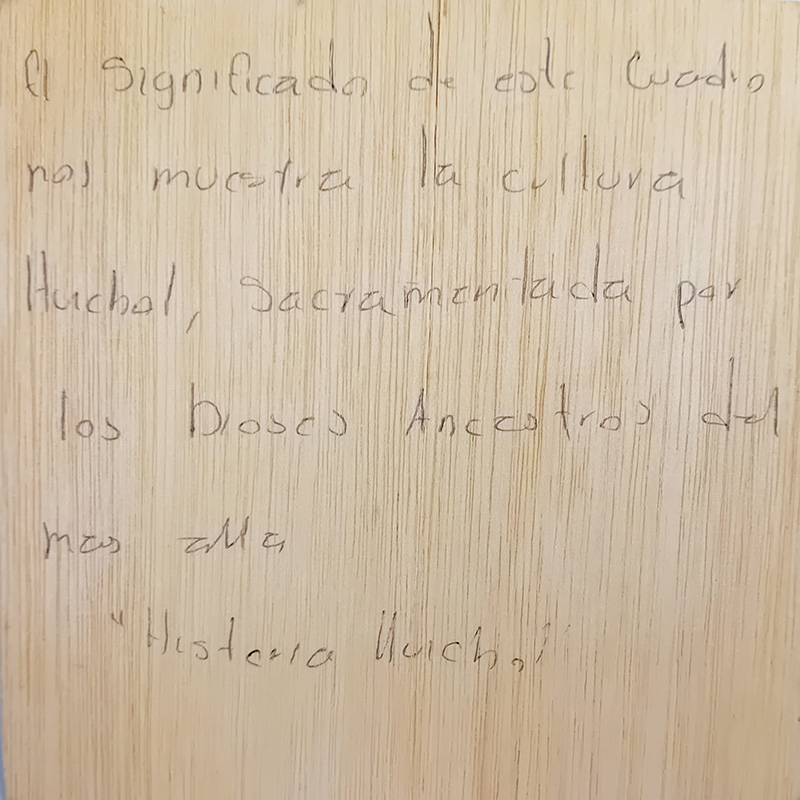 El Significado de este Cuadro
nos muestra la cultura
Huichol, Sacramentada por
los Dioses Ancestros del
mas alla
"Historia Huichol"